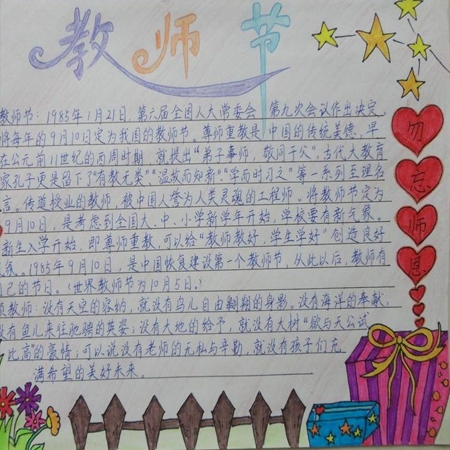 教师节
教师节：1985年1月21日，第六届全国人大常委会 第九次会议作出决定，
将每年的9月10日定为我国的教师节。尊师重教是中国的传统美德，早
在公元前11世纪的西周时期，就提出“弟子事师，敬同于父”，古代大教育
家孔子更是留下了“有教无类”“温故而知新”“学而时习之”等一系列至理名
言。传道授业的教师，被中国人誉为人类灵魂的工程师。将教师节定为
9月10日，是考虑到全国大、中、小学新学年开始，学校要有新气象。
新生入学开始，即尊师重教，可以给“教师教好，学生学好”创造良好
气氛。1985年9月10日，是中国恢复建设第一个教师节，从此以后，教师有
自己的节日。（世界教师节为10月5日。）
教师：没有天空的容纳，就没有鸟儿自由翱翔的身影；没有海洋的奉献，
没有鱼儿来往驰倏的英姿；没有大地的给予，就没有大树“欲与天公试
比高”的豪情；可以说没有老师的无私与辛勤，就没有孩子们充
满希望的美好未来。
勿
忘
师
恩